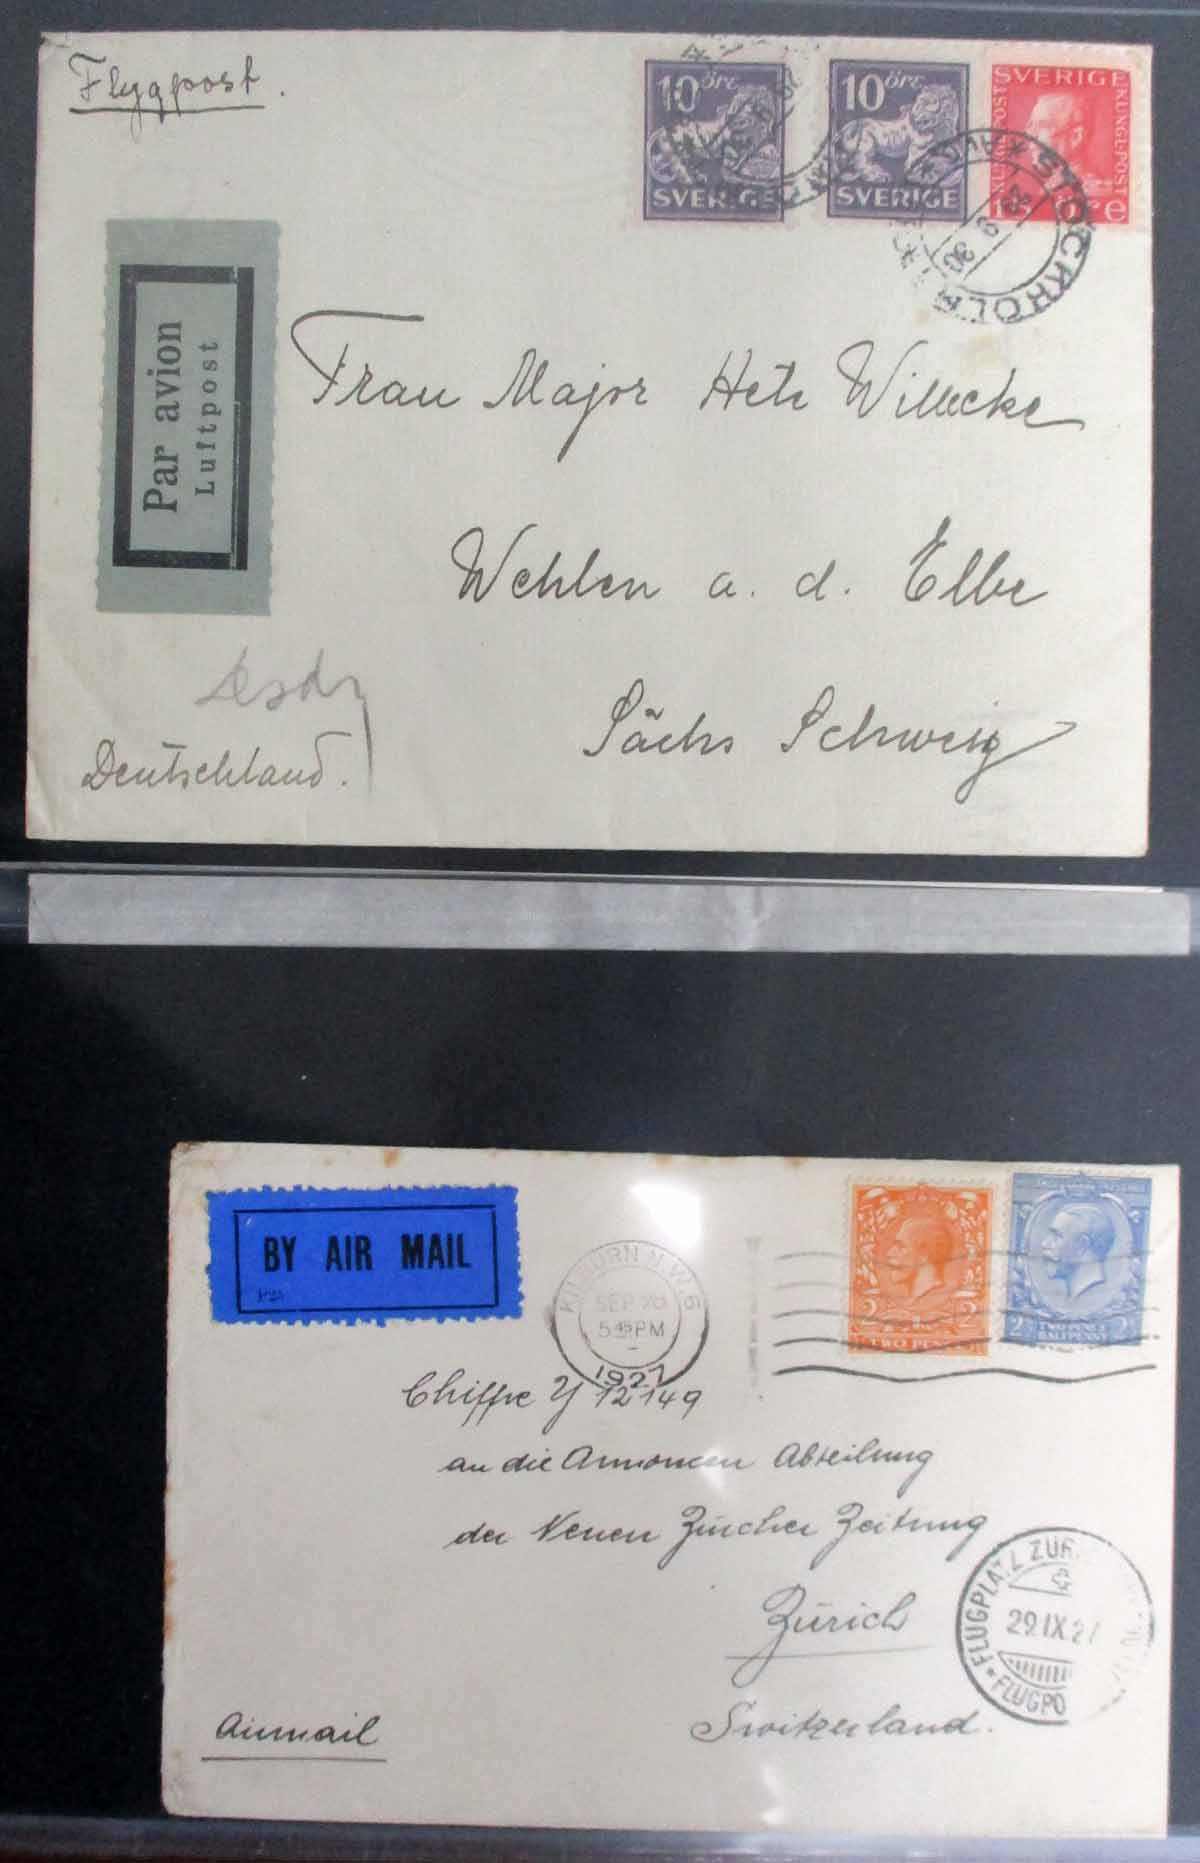 Flygpost.
10 öre
SVERIGE
10 öre
SVERIGE
SVERIGE
KUNGL POST
15 öre
STOCKHOLM
29 9 30
Par avion
Luftpost
Frau Major Hete Willecke
Wehlen a. d. Elbe
Sächs Schweig
Deutschland.
BY AIR MAIL
KILBURN N.W.6
SEP 28
5 45 PM
1927
2 2
TWO PENCE
TWO PENCE
HALFPENNY
Chiffre Y 12149
an die Annoncen Abteilung
der Neuen Zürcher Zeitung
Zürich
Switzerland.
Airmail
FLUGPLATZ ZÜR
29.IX.27
FLUGPO